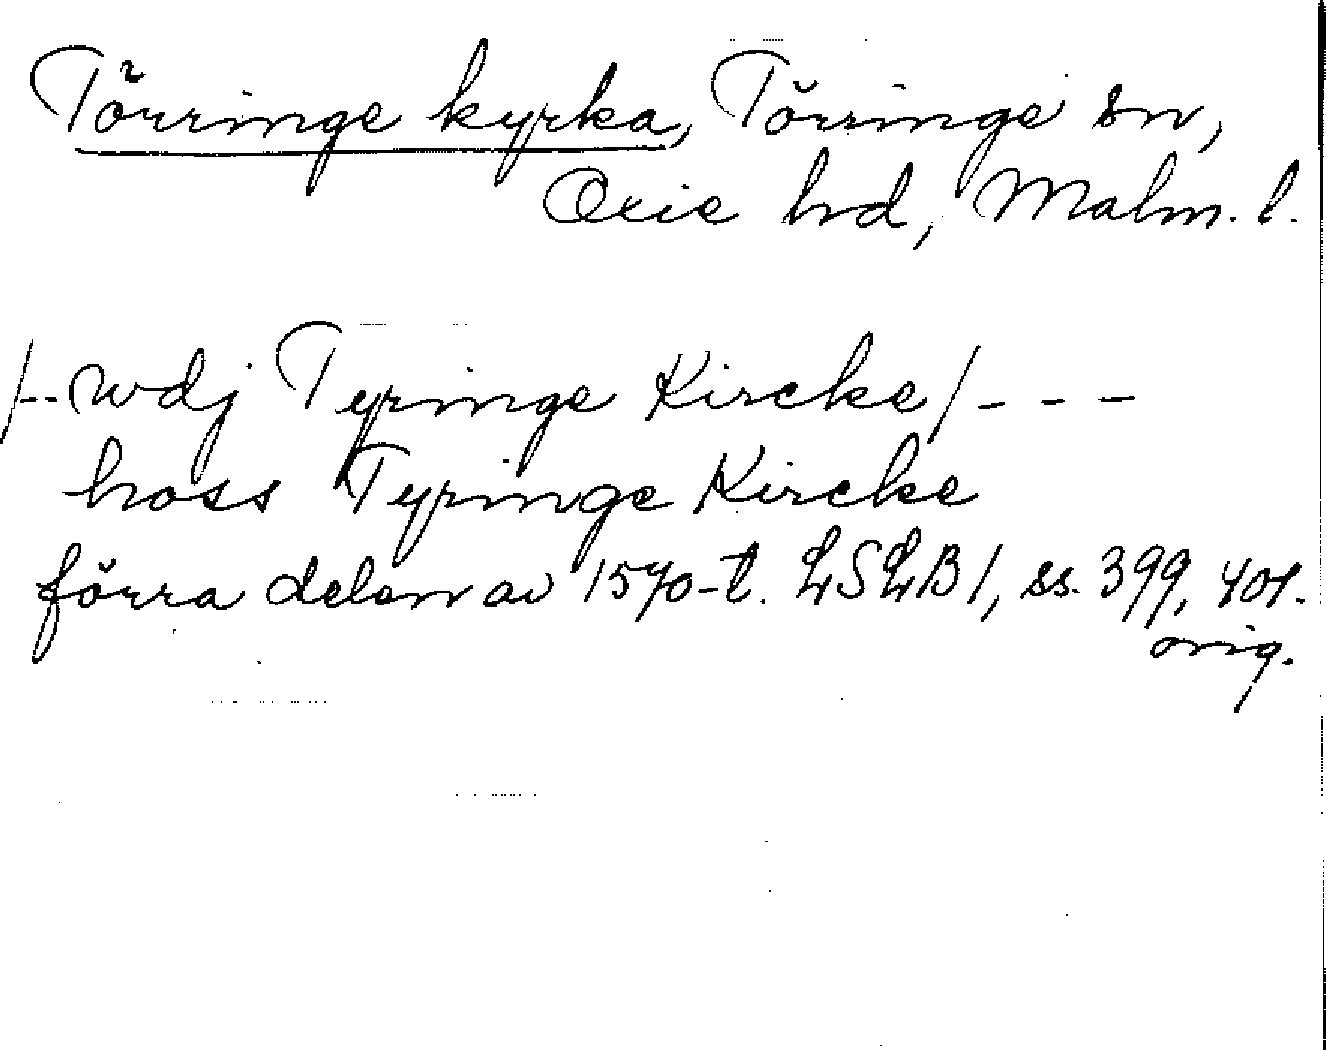 Törringe kyrka, Törringe sn,
Oxie hrd, Malm. l.
/-- wdj Tyringe Kircke/ - - -
hoss Tyringe Kircke
förra delen av 1570-t. LSLB1, ss. 399, 401.
orig.